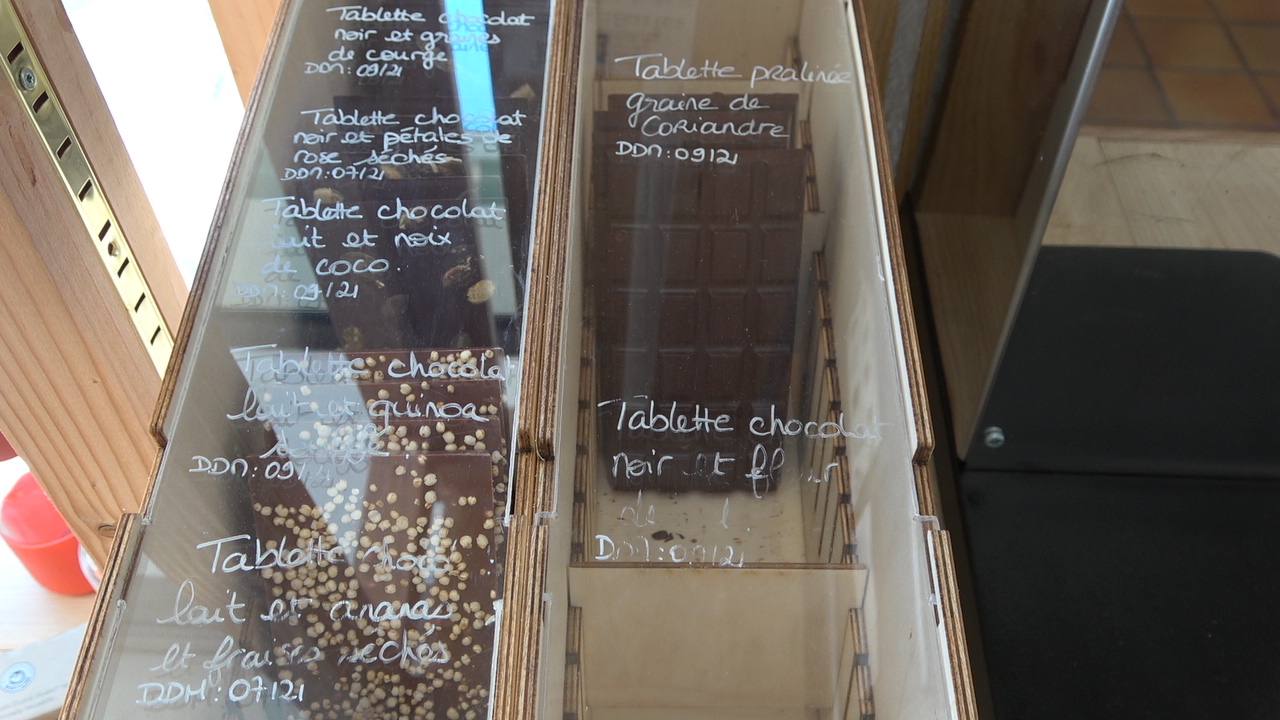 Tablette chocolat
noir et graines
de courge
DDM: 09/21
Tablette chocolat
noir et pétales de
rose séchés
DDM: 07/21
Tablette chocolat
lait et noix
de coco.
DDM: 09/21
Tablette chocolat
lait et quinoa
DDM: 09/21
Tablette choco
lait et ananas
et fraises séchés
DDM: 07/21
Tablette pralinée
graine de
Coriandre
DDM: 09/21
Tablette chocolat
noir et fleur
de
DDM: 09/21